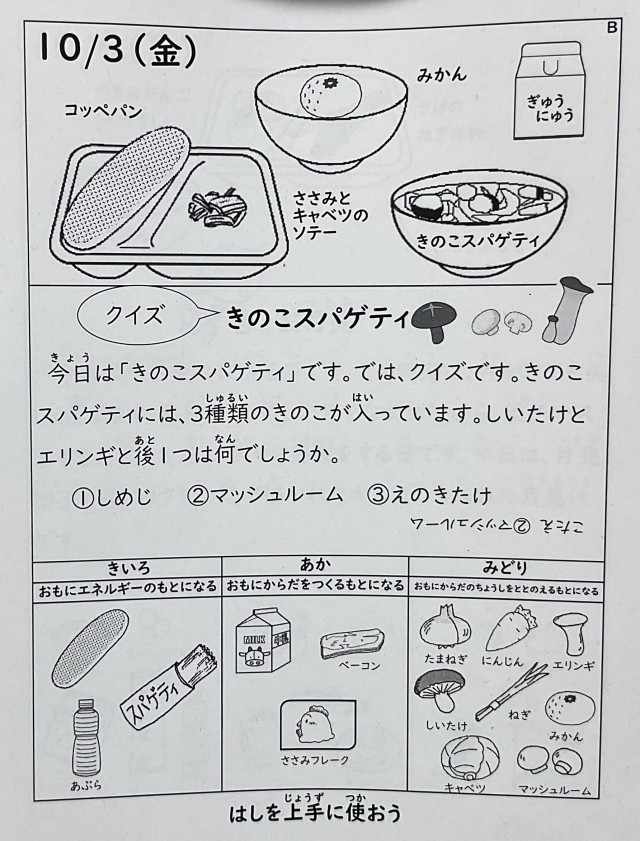 B
10/3(金)
コッペパン
みかん
ぎゅう
にゅう
ささみと
キャベツの
ソテー
きのこスパゲティ
クイズ
きのこスパゲティ
今日は「きのこスパゲティ」です。では、クイズです。きのこ
スパゲティには、3種類のきのこが入っています。しいたけと
エリンギと後1つは何でしょうか。
①しめじ ②マッシュルーム ③えのきたけ
こたえ ②マッシュルーム
きいろ
おもにエネルギーのもとになる
スパゲティ
あぶら
あか
おもにからだをつくるもとになる
MILK
ベーコン
ささみフレーク
みどり
おもにからだのちょうしをととのえるもとになる
たまねぎ
にんじん
エリンギ
しいたけ
ねぎ
みかん
キャベツ
マッシュルーム
はしを上手に使おう